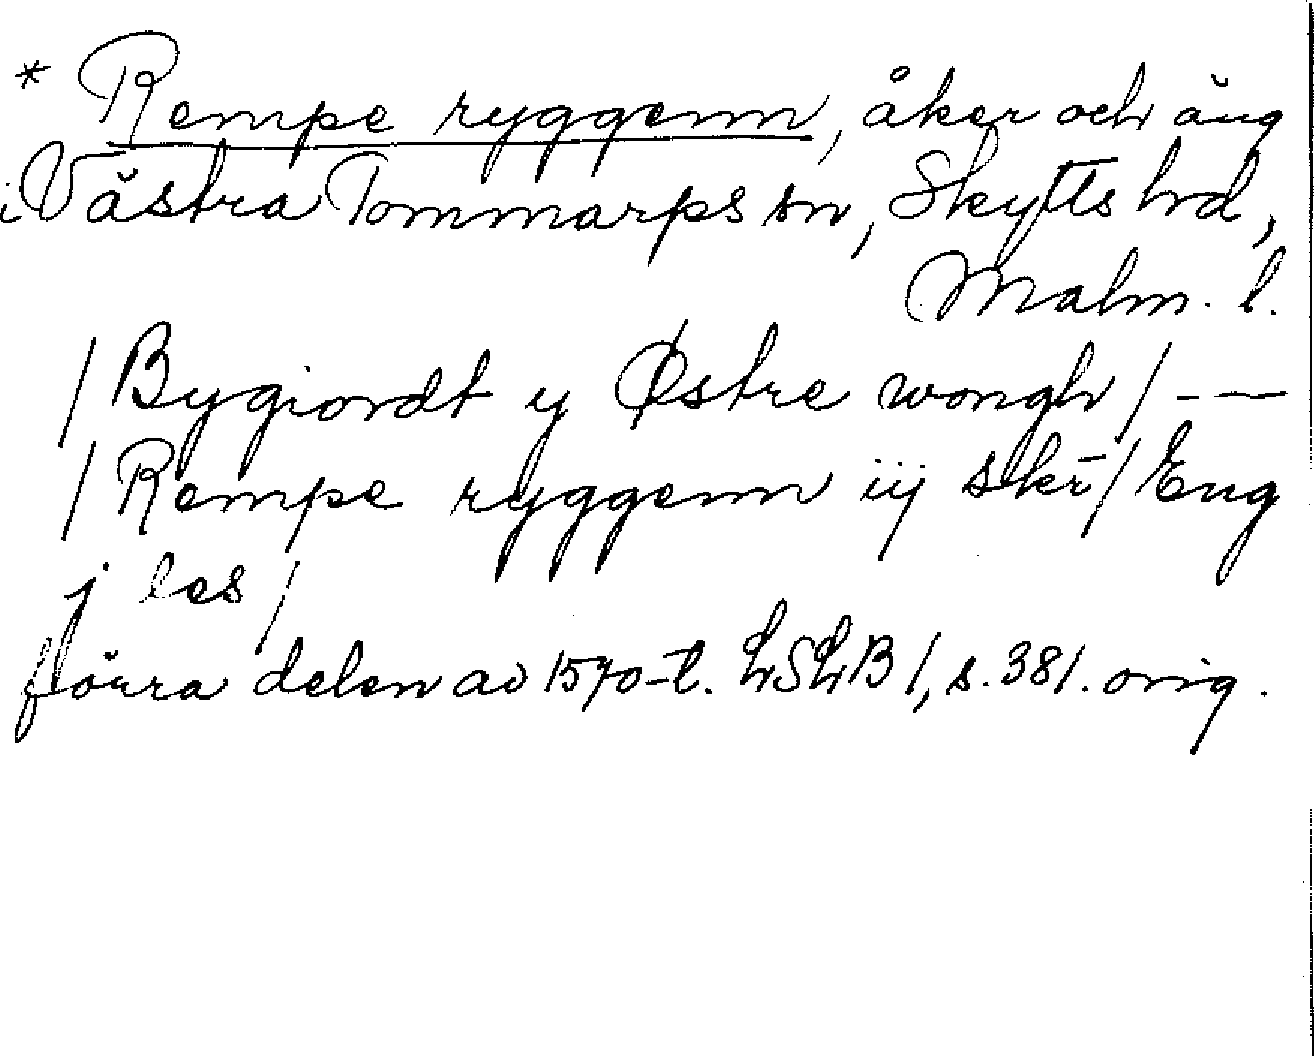 * Rempe ryggenn, åker och äng
i Västra Tommarps sn, Skytts hd,
Malm. l.
/ Bygiordt y Østre wongh / - —
/ Rempe ryggenn iij skr̄ / Eng
j les /
förra delen av 1570-t. LSLB 1, s. 381. orig.